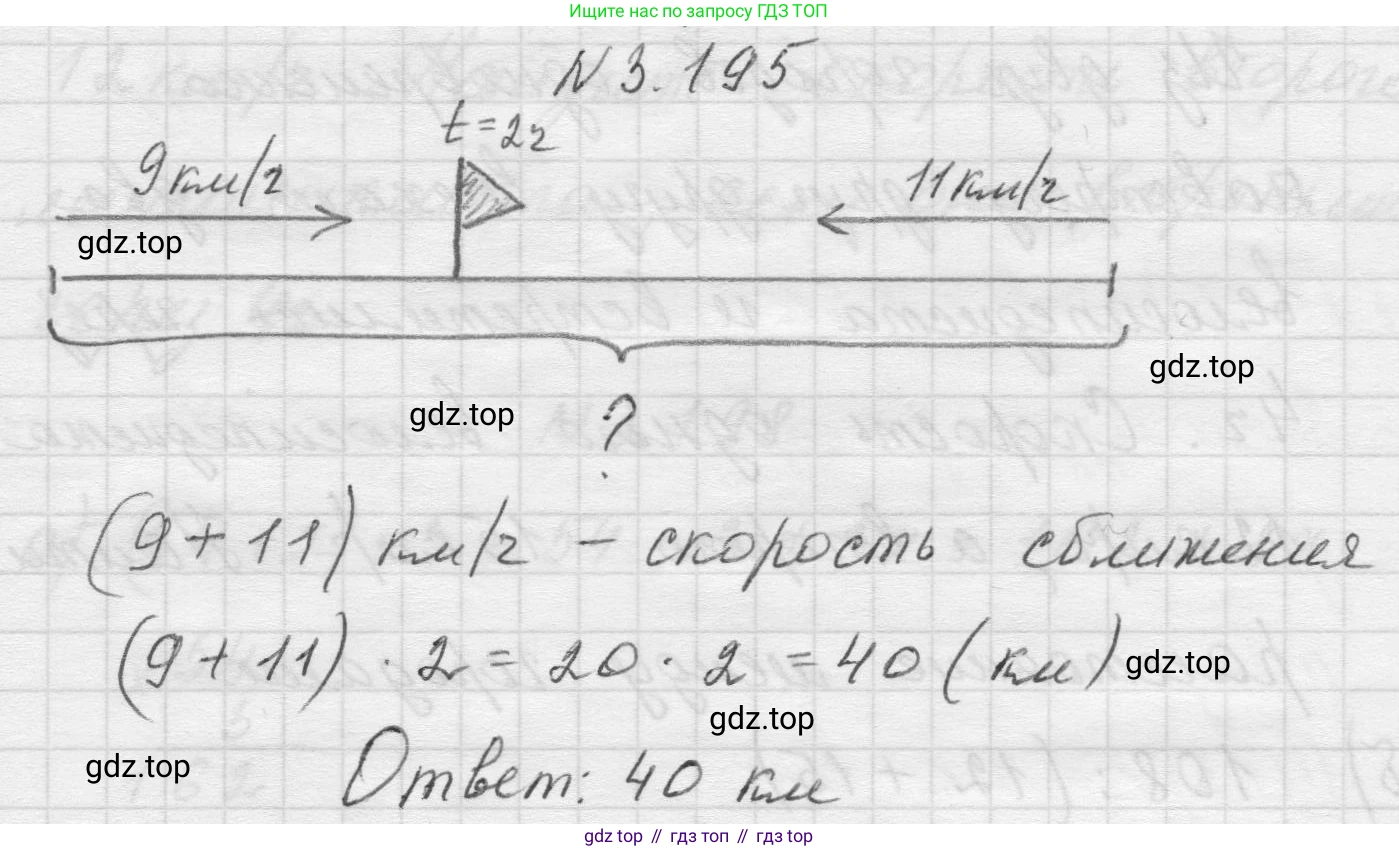 Ищите нас по запросу ГДЗ ТОП
N 3.195
t = 2 ч
9 км/ч
11 км/ч
gdz.top
gdz.top
gdz.top
?
(9 + 11) км/ч – скорость сближения
(9 + 11) · 2 = 20 · 2 = 40 (км)
gdz.top
gdz.top
gdz.top
Ответ: 40 км
gdz top // гдз топ // гдз top